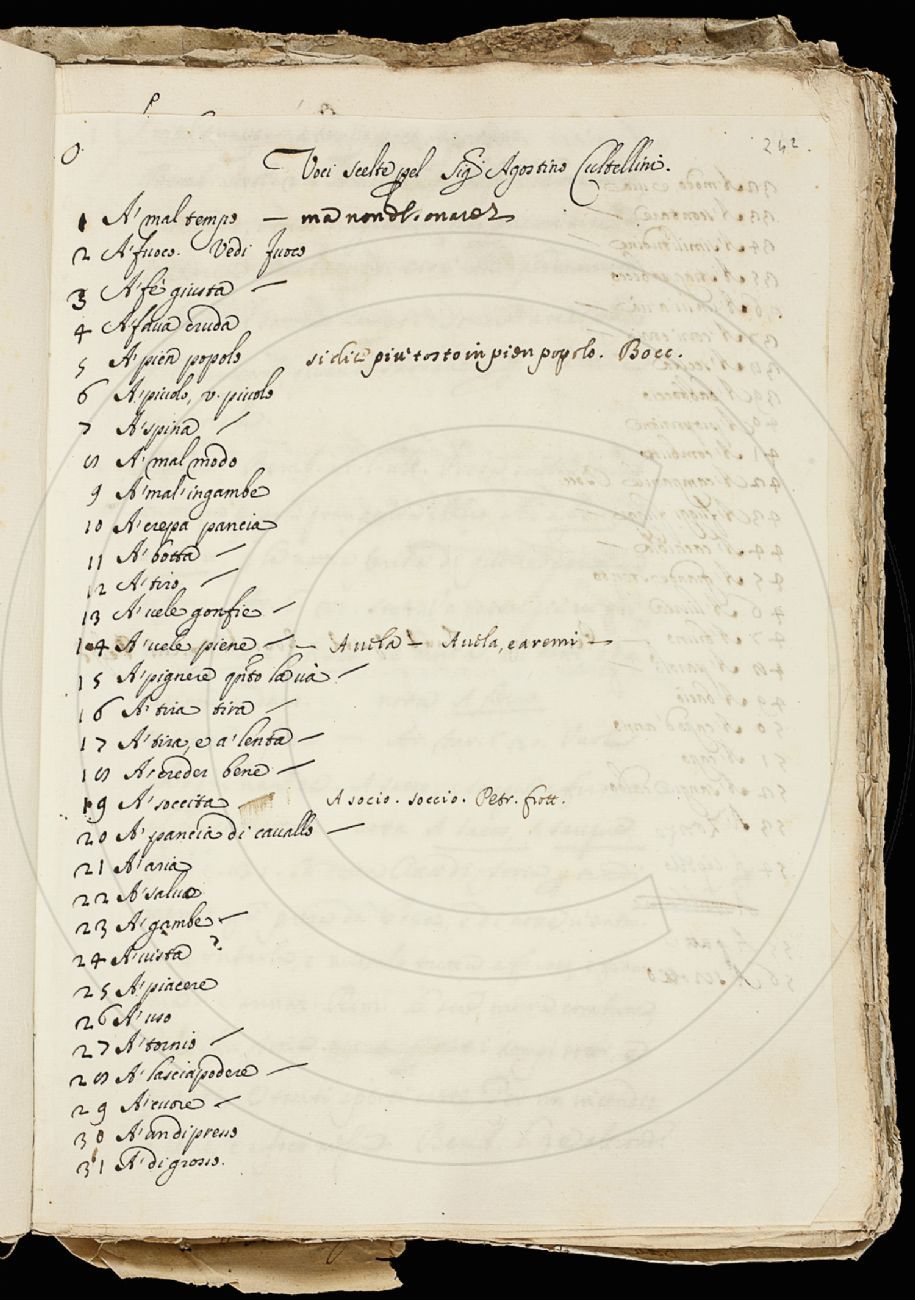 242.
Voci scelte pel Sig. Agostino Coltellini.
1 A' mal tempo —
2 A' fuoco. Vedi fuoco
3 A' fe giusta —
4 A' faua cruda
5 A' pien popolo si dice piu tosto in pien popolo. Bocc.
6 A' piuolo, v. piuolo
7 A' spina —
8 A' mal modo
9 A' mal' ingambe
10 A' crepa pancia
11 A' botta —
12 A' tiro, —
13 A' uele gonfie —
14 A' uele piene — — A uela — A uela, e a remi —
15 A' pignere qnto la uà —
16 A' tira tira —
17 A' tira, e a' lenta —
18 A' creder bene —
19 A' soccita A socio. soccio. Petr. frott.
20 A' pancia di cauallo —
21 A' aria
22 A' salua
23 A' gambe —
24 A' uista
25 A' piacere
26 A' uso
27 A' tornio —
28 A' lasciapodere —
29 A' cuore —
30 A' un di presso
31 A' di grosso.